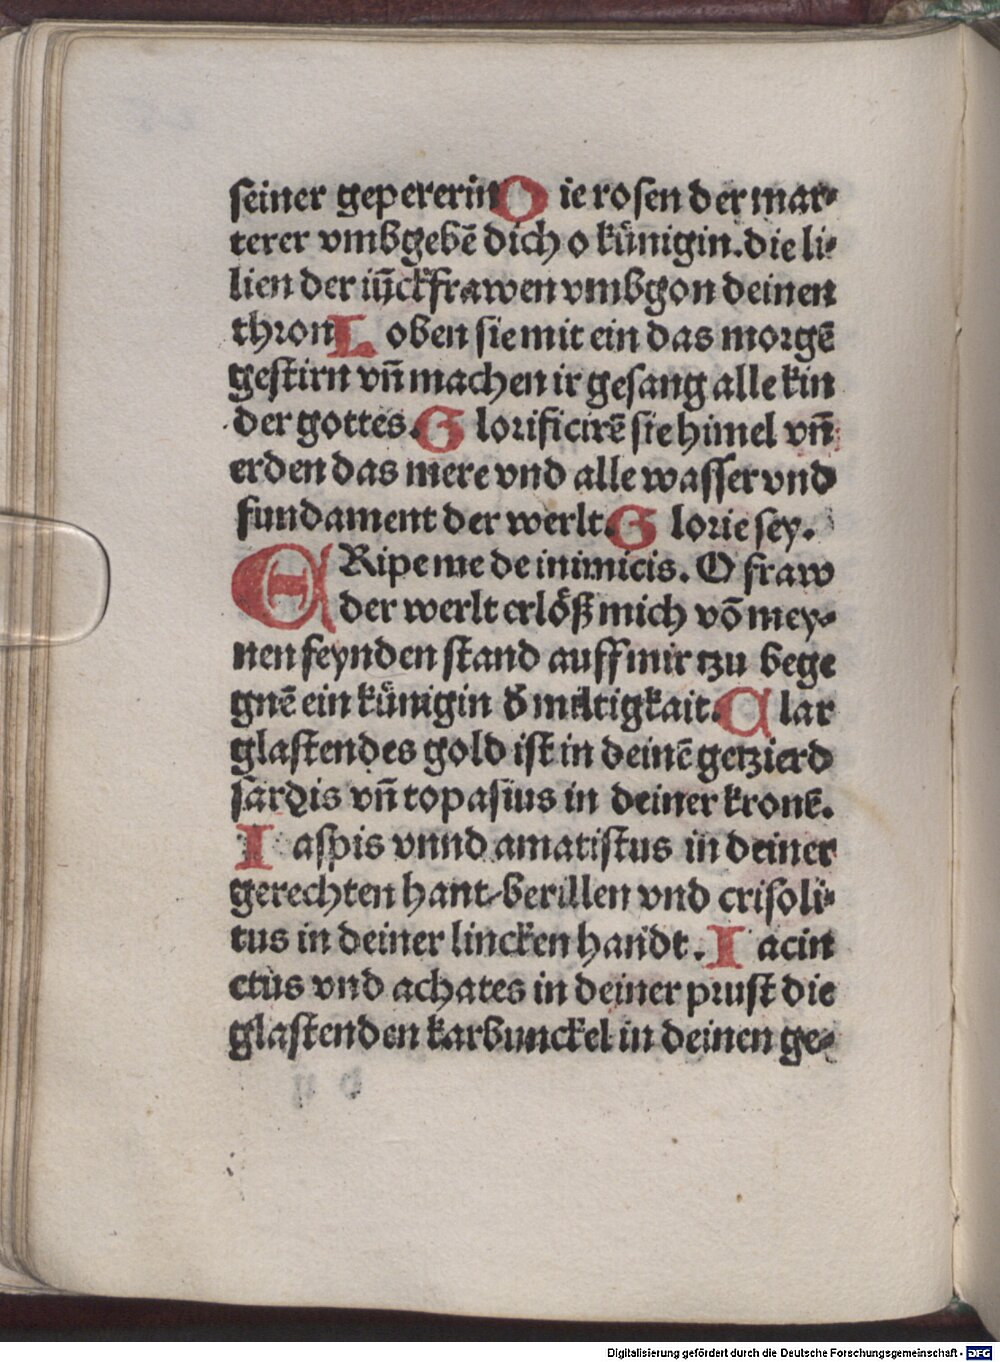 seiner gepererin D ie rosen der mar⸗
terer vmbgebē dich o künigin. die li⸗
lien der iūckfrawen vmbgon deinen
thron L oben sie mit ein das morgē
gestirn vn̄ machen ir gesang alle kin
der gottes. G lorificirē sie himel vn̄
erden das mere vnd alle wasser vnd
fundament der werlt. G lorie sey.
ERipe me de inimicis. O fraw
der werlt erlöß mich vō mey⸗
nen feynden stand auff mir tzu bege
gnē ein künigin d̄ miltigkait. C lar
glastendes gold ist in deinē getzierd
sardis vn̄ topasius in deiner kronē.
I aspis vnnd amatistus in deiner
gerechten hant berillen vnd crisoli⸗
tus in deiner lincken handt. I acin
ctus vnd achates in deiner prust die
glastenden karbunckel in deinen ge⸗
Digitalisierung gefördert durch die Deutsche Forschungsgemeinschaft - DFG